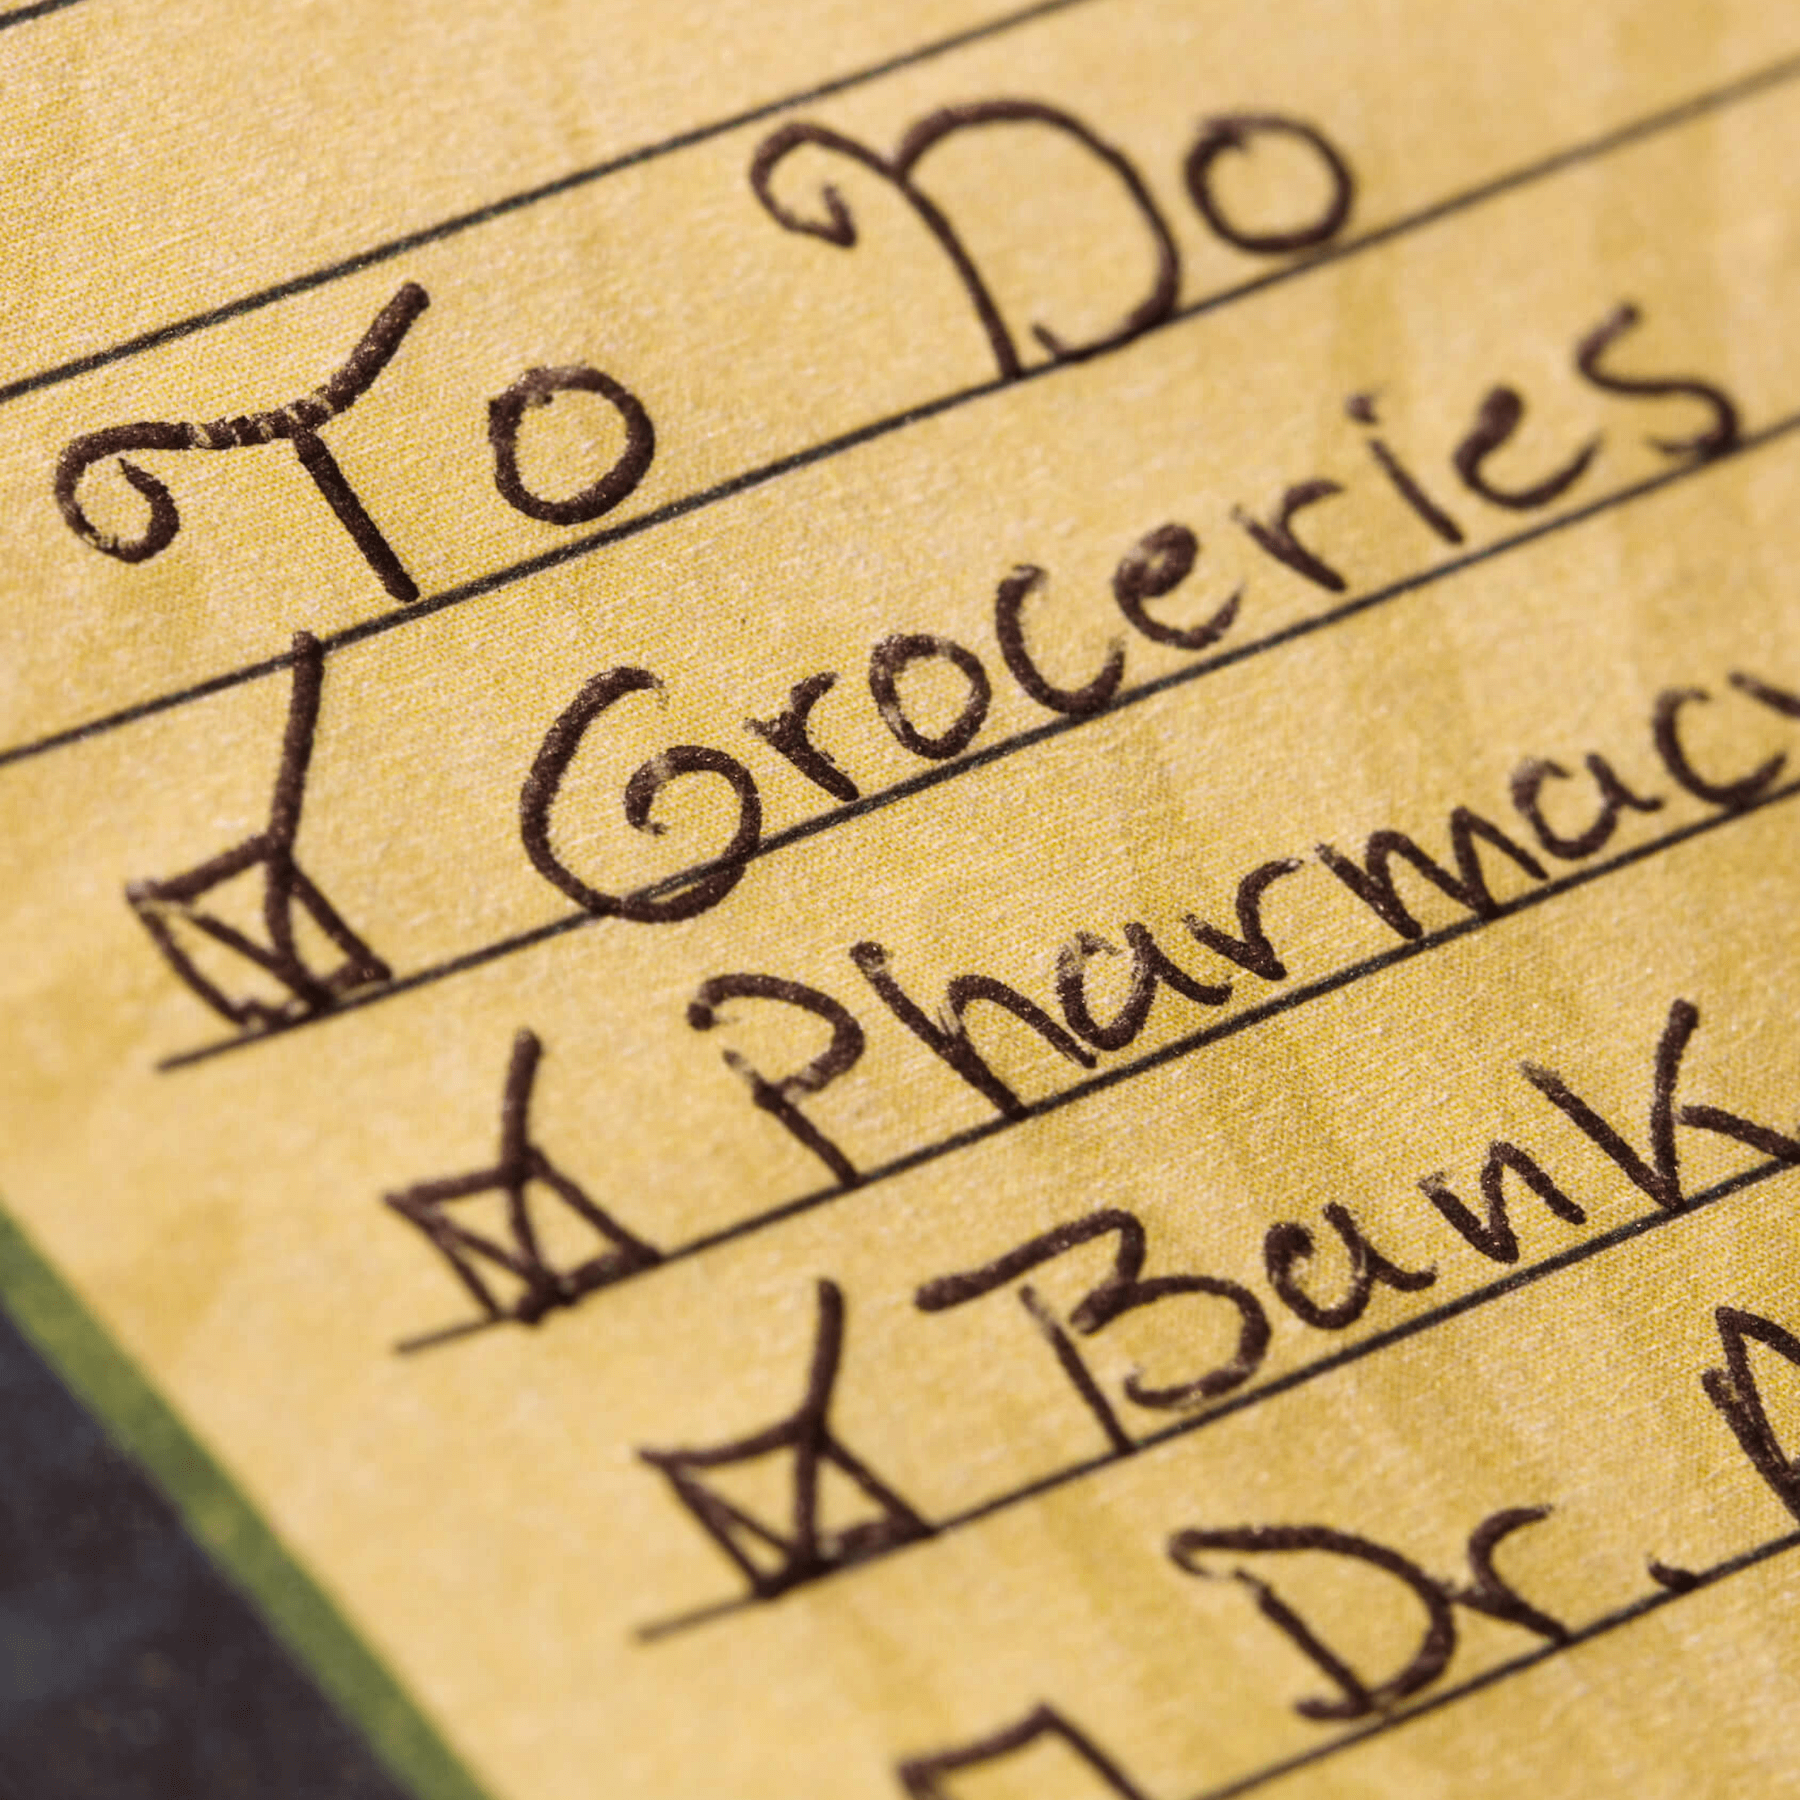 To Do
Groceries
Pharmac
Bank
Dr.